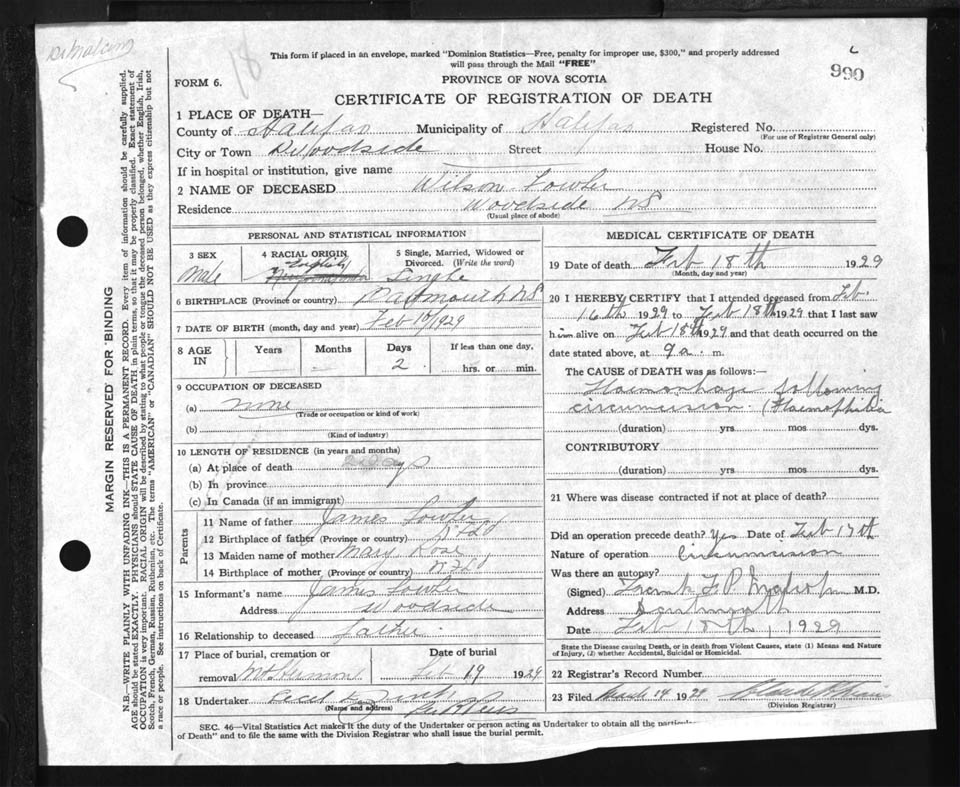 DrMalcolm
This form if placed in an envelope, marked "Dominion Statistics—Free, penalty for improper use, $300," and properly addressed
will pass through the Mail "FREE"
990
FORM 6.
PROVINCE OF NOVA SCOTIA
CERTIFICATE OF REGISTRATION OF DEATH
1 PLACE OF DEATH—
County of Halifax Municipality of Halifax Registered No.
(For use of Registrar General only)
City or Town Woodside Street House No.
If in hospital or institution, give name
2 NAME OF DECEASED Wilson Fowler
Residence Woodside NS
(Usual place of abode)
PERSONAL AND STATISTICAL INFORMATION
3 SEX
Male
4 RACIAL ORIGIN
English
5 Single, Married, Widowed or
Divorced. (Write the word)
Single
6 BIRTHPLACE (Province or country) Dartmouth NS
7 DATE OF BIRTH (month, day and year) Feb 16/1929
8 AGE
IN
Years
Months
Days
2
If less than one day,
hrs. or min.
9 OCCUPATION OF DECEASED
(a) none
(Trade or occupation or kind of work)
(b)
(Kind of industry)
10 LENGTH OF RESIDENCE (in years and months)
(a) At place of death 2 days
(b) In province
(c) In Canada (if an immigrant)
Parents
11 Name of father James Fowler
12 Birthplace of father (Province or country) Nfld
13 Maiden name of mother Mary Rose
14 Birthplace of mother (Province or country) Nfld
15 Informant's name James Fowler
Address Woodside
16 Relationship to deceased father
17 Place of burial, cremation or
removal Mt Hermon
Date of burial
Feb 19 1929
18 Undertaker
(Name and address)
MEDICAL CERTIFICATE OF DEATH
19 Date of death Feb 18th 1929
(Month, day and year)
20 I HEREBY CERTIFY that I attended deceased from Feb.
16th 1929 to Feb 18th 1929 that I last saw
him alive on Feb 18th 1929 and that death occurred on the
date stated above, at 9 a. m.
The CAUSE of DEATH was as follows:—
Haemorrhage following
circumcision. (Haemophilia
(duration) yrs mos dys.
CONTRIBUTORY
(duration) yrs mos dys.
21 Where was disease contracted if not at place of death?
Did an operation precede death? Yes Date of Feb 17th
Nature of operation Circumcision
Was there an autopsy?
(Signed) Frank F.P. M.D.
Address Dartmouth
Date Feb 18th, 1929
State the Disease causing Death, or in death from Violent Causes, state (1) Means and Nature
of Injury, (2) whether Accidental, Suicidal or Homicidal.
22 Registrar's Record Number
23 Filed March 14 1929
(Division Registrar)
SEC. 46—Vital Statistics Act makes it the duty of the Undertaker or person acting as Undertaker to obtain all the
of Death" and to file the same with the Division Registrar who shall issue the burial permit.
MARGIN RESERVED FOR BINDING
N.B.—WRITE PLAINLY WITH UNFADING INK—THIS IS A PERMANENT RECORD. Every item of information should be carefully supplied.
AGE should be stated EXACTLY. PHYSICIANS should STATE CAUSE OF DEATH in plain terms, so that it may be properly classified. Exact statement of
OCCUPATION is very important. RACIAL ORIGIN will be described by stating to what people or tongue the deceased person belonged, whether English, Irish,
Scotch, French, German, Russian, Ruthenian, etc. The terms "AMERICAN" or "CANADIAN" SHOULD NOT BE USED as they express citizenship but not
a race or people. See instructions on back of Certificate.